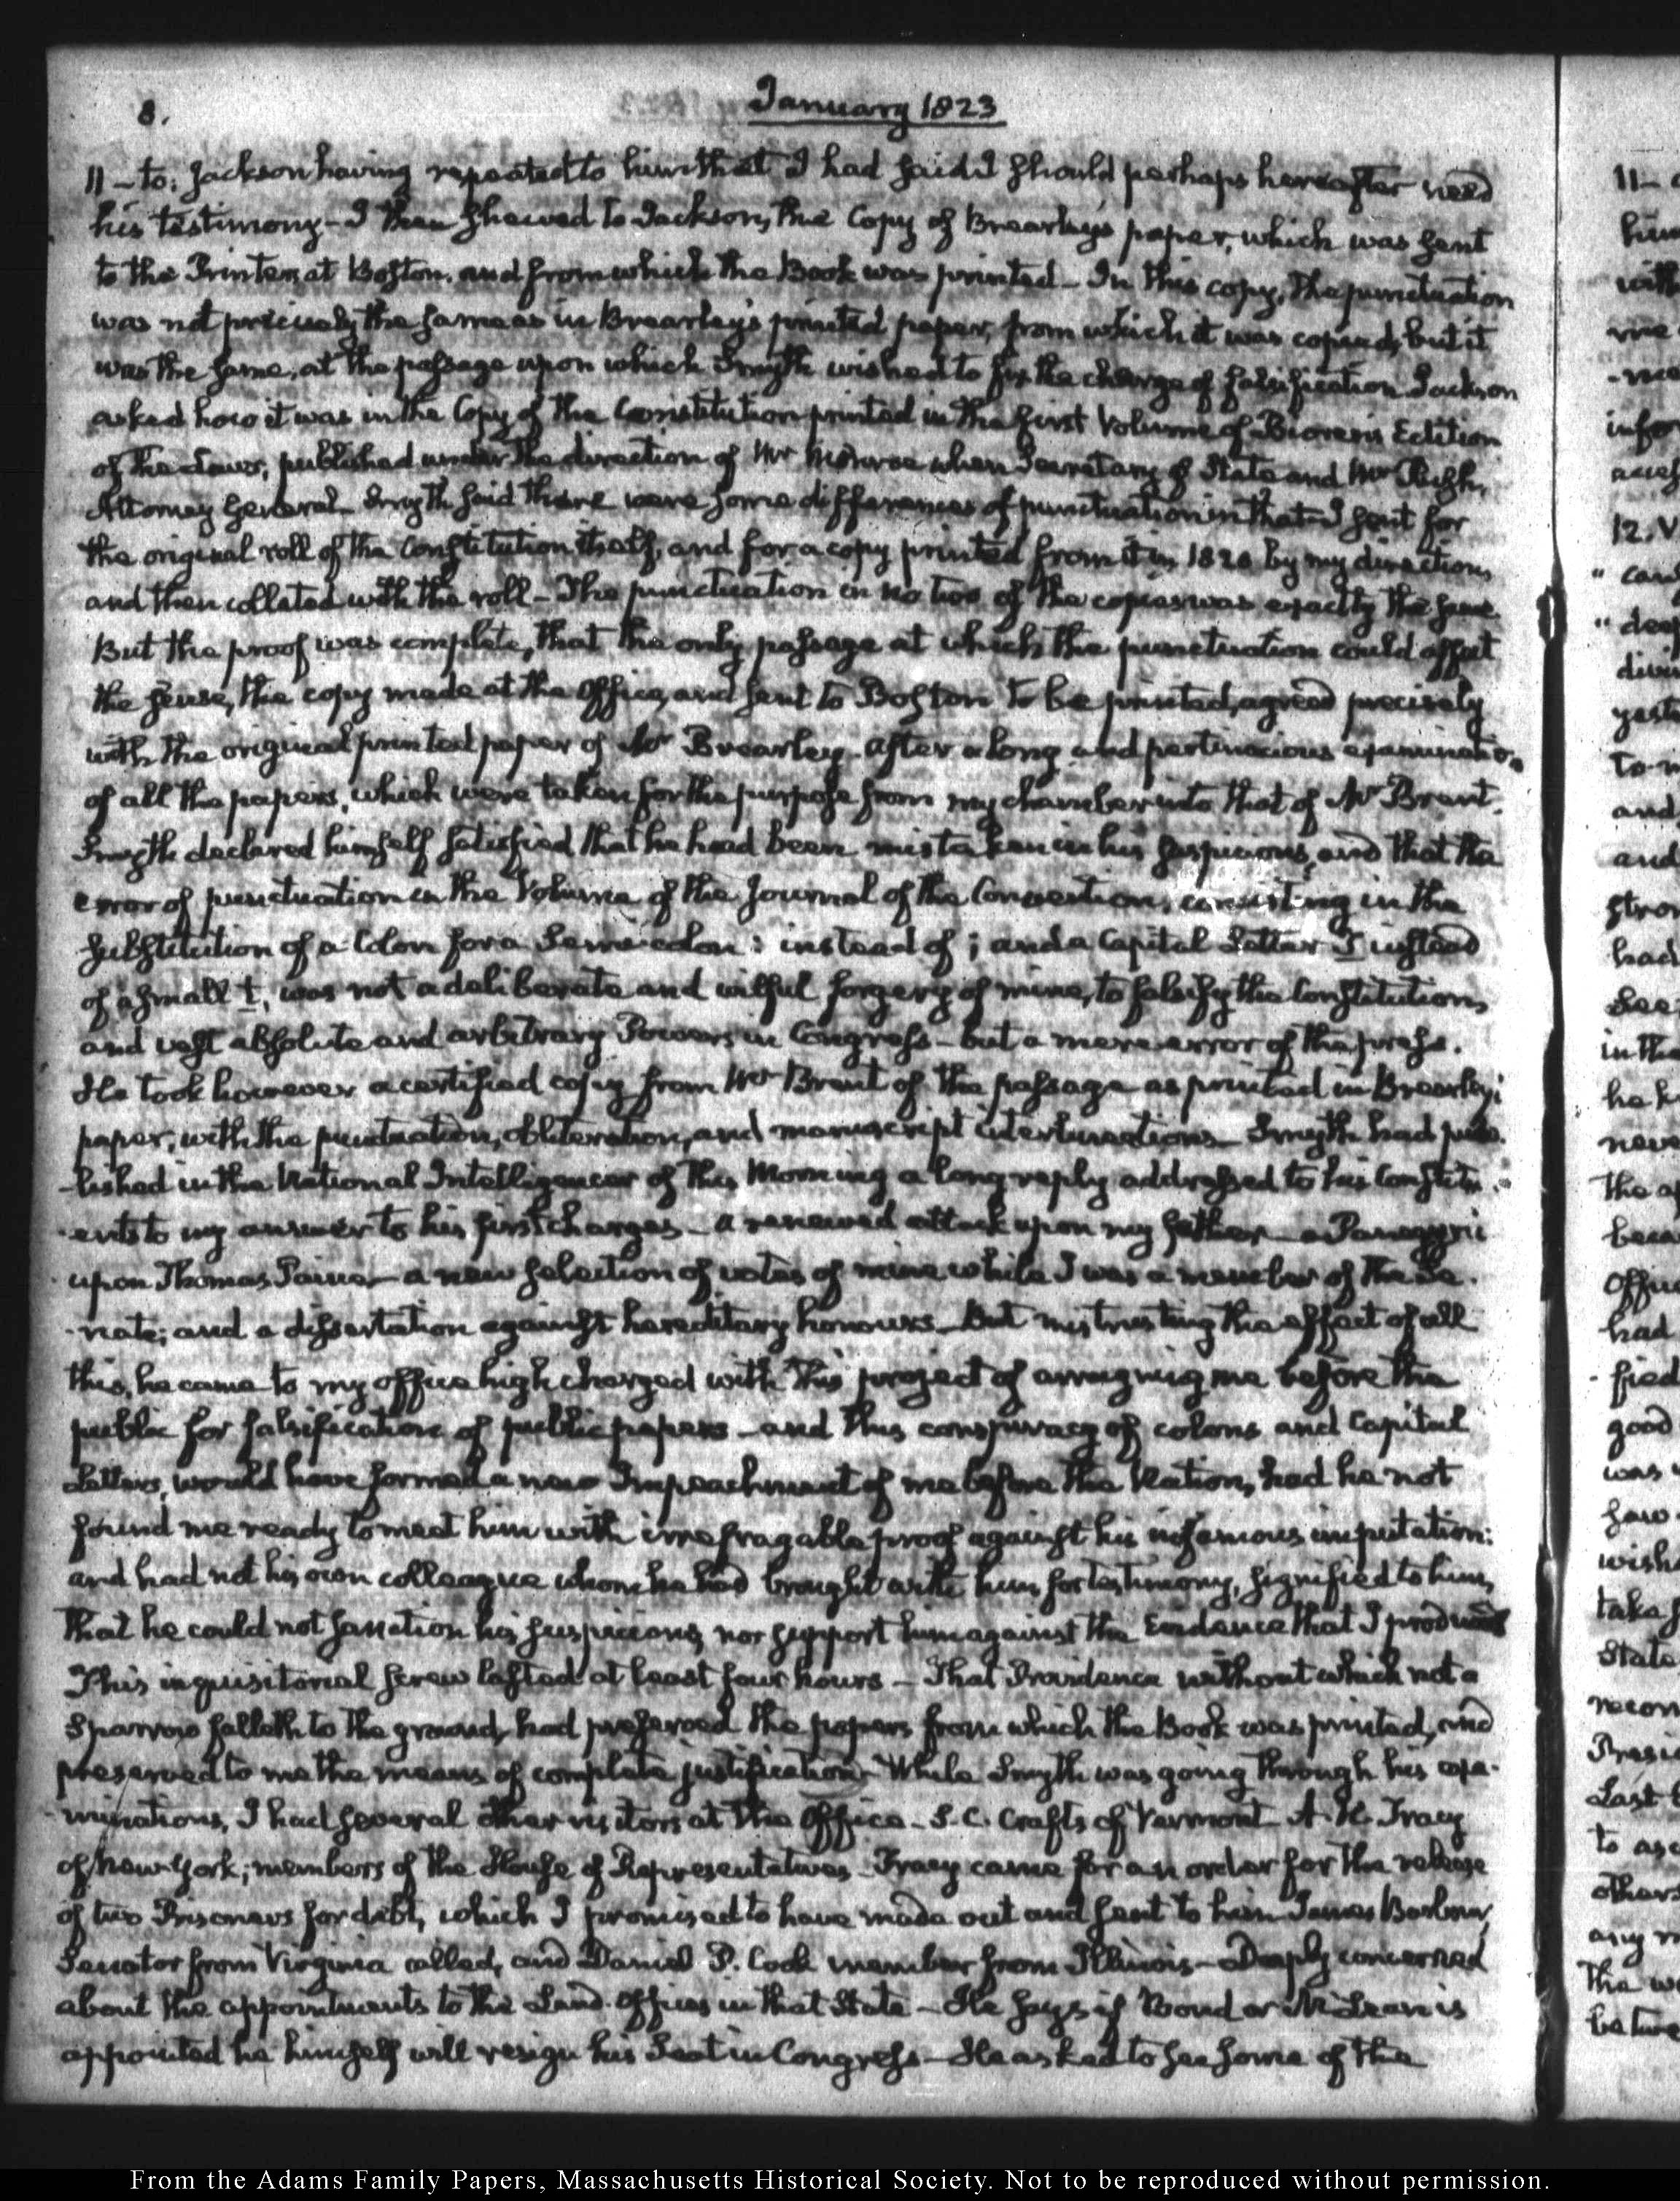 8.
January 1823
11 — to: Jackson having repeated to him that I had said I should perhaps hereafter need
his testimony — I then shewed to Jackson, the Copy of Brearley's paper, which was sent
to the Printer at Boston, and from which the Book was printed — In this copy, the punctuation
was not precisely the same as in Brearley's printed paper, from which it was copied, but it
was the same, at the passage upon which Smyth wished to fix the charge of falsification Jackson
asked how it was in the Copy of the Constitution printed in the first Volume of Bioren's Edition
of the Laws, published under the direction of Mr Monroe when Secretary of State and Mr Rush,
Attorney General — Smyth said there were some differences of punctuation in that — I sent for
the original roll of the Constitution itself, and for a copy printed from it in 1820 by my direction,
and then collated with the roll — The punctuation in no two of the copies was exactly the same
But the proof was complete, that the only passage at which the punctuation could affect
the sense, the copy made at the Office, and sent to Boston to be printed, agreed precisely
with the original printed paper of Mr Brearley — After a long and pertinacious examination
of all the papers, which were taken for the purpose from my chamber into that of Mr Brent.
Smyth declared himself satisfied that he had been mistaken in his suspicions, and that the
error of punctuation in the Volume of the Journal of the Convention, consisting in the
substitution of a Colon for a Semicolon : instead of ; and a Capital Letter T instead
of a small t, was not a deliberate and wilful forgery of mine, to falsify the Constitution,
and vest absolute and arbitrary Powers in Congress — but a mere error of the press.
He took however a certified copy from Mr Brent of the passage as printed in Brearley's
paper, with the punctuation, obliteration, and manuscript interlineations — Smyth had pub-
-lished in the National Intelligencer of this Morning a long reply addressed to his Constitu-
-ents to my answer to his first charges — a renewed attack upon my father — a Panegyric
upon Thomas Paine — a new selection of votes of mine while I was a member of the Se-
-nate; and a dissertation against hereditary honours — But mistrusting the effect of all
this, he came to my office high charged with this project of arraigning me before the
public for falsification of public papers — and this conspiracy of colons and Capital
Letters, would have formed a new Impeachment of me before the Nation, had he not
found me ready to meet him with irrefragable proof against his infamous imputation:
and had not his own colleague whom he had brought with him for testimony, signified to him,
that he could not sanction his suspicions, nor support him against the Evidence that I produced
This inquisitorial screw lasted at least four hours — That Providence without which not a
Sparrow falleth to the ground, had preserved the papers from which the Book was printed, and
preserved to me the means of complete justification — While Smyth was going through his exa-
-minations, I had several other visitors at the Office — S. C. Crafts of Vermont A. H. Tracy
of New-York; members of the House of Representatives — Tracy came for an order for the release
of two Prisoners for debt, which I promised to have made out and sent to him James Barbour,
Senator from Virginia called, and Daniel P. Cook member from Illinois — Deeply concerned
about the appointments to the Land Offices in that State — He says if Bond or McLean is
appointed he himself will resign his Seat in Congress — He asked to see some of the
11-
12.
From the Adams Family Papers, Massachusetts Historical Society. Not to be reproduced without permission.